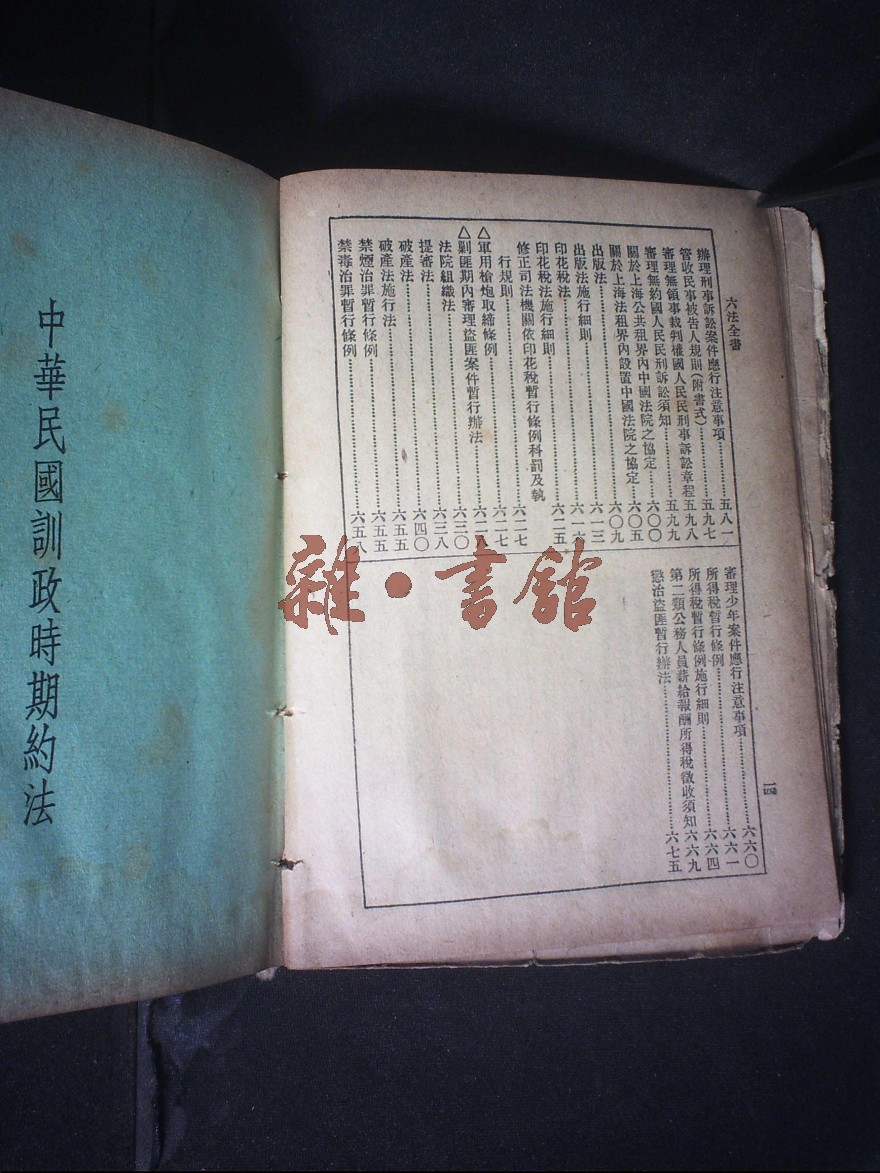 六法全書
辦理刑事訴訟案件應行注意事項……五八一
管收民事被告人規則(附書式)……五九七
審理無領事裁判權國人民民刑事訴訟章程五九八
審理無約國人民民刑訴訟須知……五九九
關於上海公共租界內中國法院之協定……六〇〇
關於上海法租界內設置中國法院之協定……六〇五
出版法……六〇九
出版法施行細則……六一三
印花稅法……六一六
印花稅法施行細則……六二五
修正司法機關依印花稅暫行條例科罰及執
行規則……六二七
△軍用槍炮取締條例……六二七
△剿匪期內審理盜匪案件暫行辦法……六二八
法院組織法……六三〇
提審法……六三八
破產法……六四〇
破產法施行法……六五五
禁煙治罪暫行條例……六五五
禁毒治罪暫行條例……六五八
審理少年案件應行注意事項……六六〇
所得稅暫行條例……六六一
所得稅暫行條例施行細則……六六四
第二類公務人員薪給報酬所得稅徵收須知六六九
懲治盜匪暫行辦法……六七五
一四
中華民國訓政時期約法
雜·書館